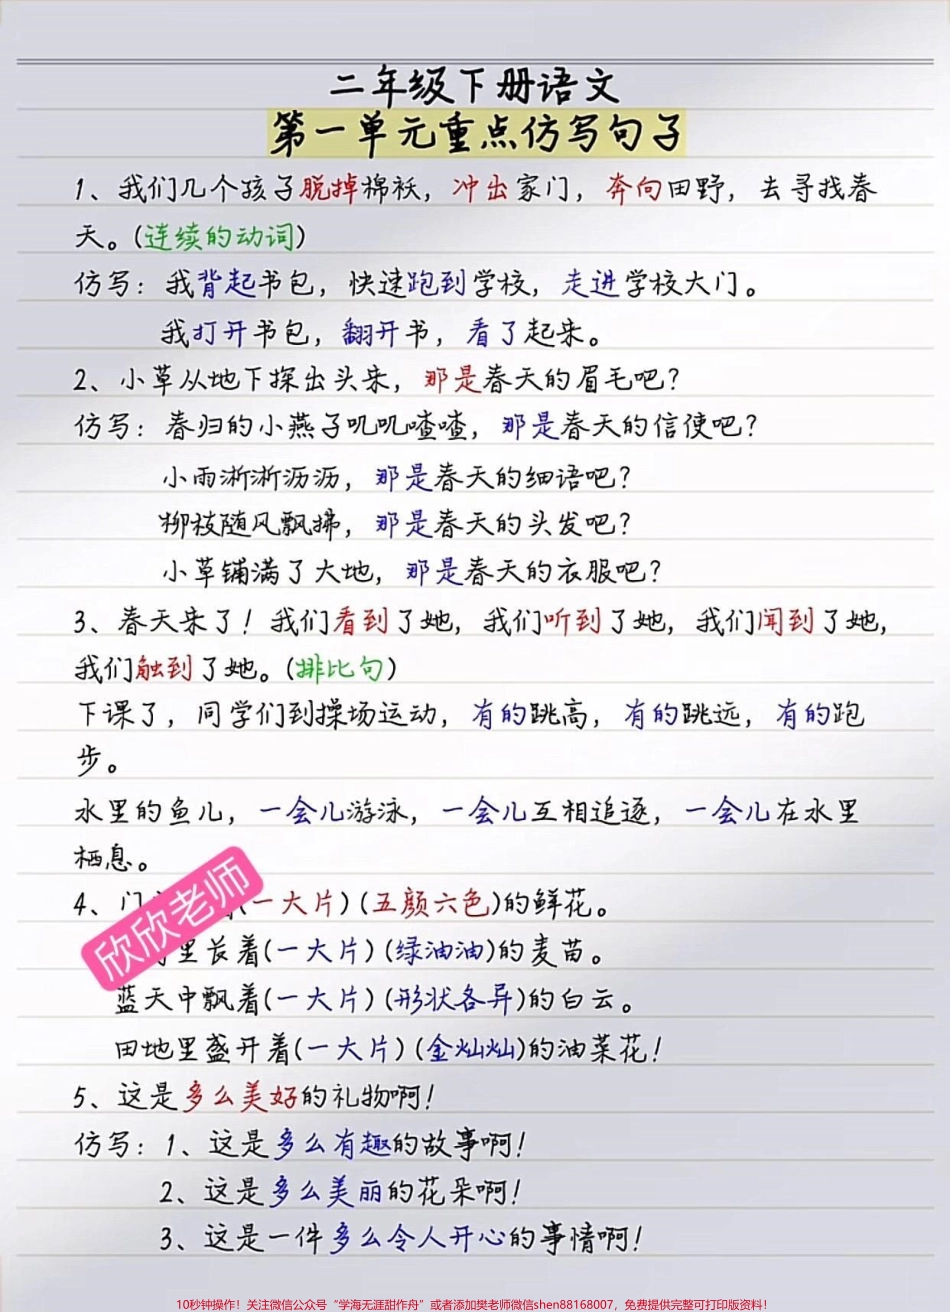 二年级下册语文
第一单元重点仿写句子
1、我们几个孩子脱掉棉袄，冲出家门，奔向田野，去寻找春
天。(连续的动词)
仿写：我背起书包，快速跑到学校，走进学校大门。
我打开书包，翻开书，看了起来。
2、小草从地下探出头来，那是春天的眉毛吧？
仿写：春归的小燕子叽叽喳喳，那是春天的信使吧？
小雨淅淅沥沥，那是春天的细语吧？
柳枝随风飘拂，那是春天的头发吧？
小草铺满了大地，那是春天的衣服吧？
3、春天来了！我们看到了她，我们听到了她，我们闻到了她，
我们触到了她。(排比句)
下课了，同学们到操场运动，有的跳高，有的跳远，有的跑
步。
水里的鱼儿，一会儿游泳，一会儿互相追逐，一会儿在水里
栖息。
4、门(一大片)(五颜六色)的鲜花。
里长着(一大片)(绿油油)的麦苗。
蓝天中飘着(一大片)(形状各异)的白云。
田地里盛开着(一大片)(金灿灿)的油菜花！
欣欣老师
5、这是多么美好的礼物啊！
仿写：1、这是多么有趣的故事啊！
2、这是多么美丽的花朵啊！
3、这是一件多么令人开心的事情啊！
10秒钟操作！关注微信公众号“学海无涯甜作舟”或者添加樊老师微信shen88168007，免费提供完整可打印版资料！